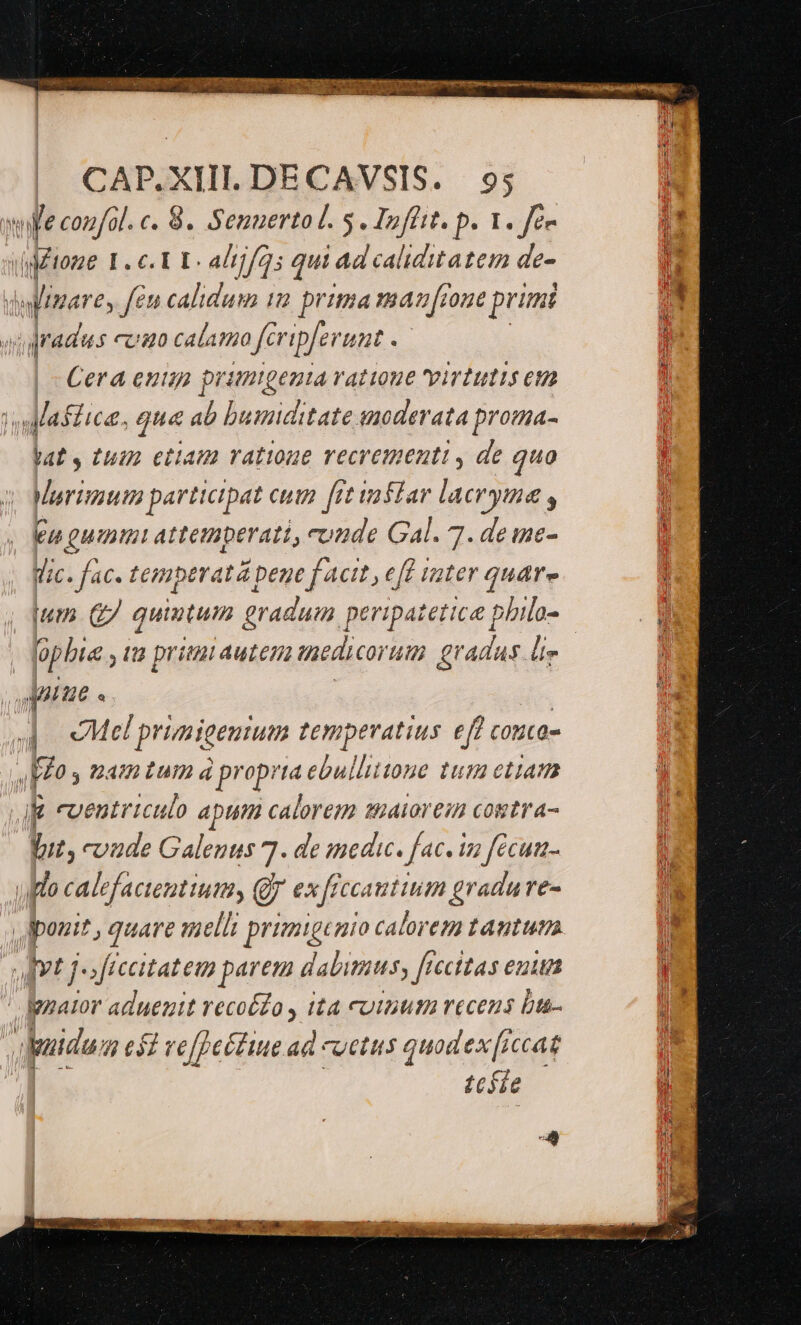 CAP.XIII. DE CAVSIS. 95
de consol. c. 8. Sennerto l. 5. Instit. p. 1. se-
ctione 1. c. 11. alijsq; qui ad caliditatem de-
clinare, seu calidum in prima mansione primi
gradus vno calamo scripserunt.
Cera enim primigenia ratione virtutis em
plastice, quæ ab humiditate moderata proma-
nat, tum etiam ratione recrementi, de quo
plurimum participat cum sit instar lacrymæ,
seu gummi attemperati, vnde Gal. 7. de me-
dic. fac. temperatā pene facit, est inter quar-
tum & quintum gradum peripateticæ philo-
sophiæ, in primi autem medicorum gradus li-
mine.
Mel primigenium temperatius est conco-
cto, nam tum à propria ebullitione tum etiam
à ventriculo apum calorem maiorem contra-
hit, vnde Galenus 7. de medic. fac. in secun-
do calefacientium, & exsiccantium gradu re-
ponit, quare melli primigenio calorem tantum
vt j., siccitatem parem dabimus, siccitas enim
maior aduenit recocto, ita vinum recens hu-
midum est respectiue ad vetus quod exsiccat
teste